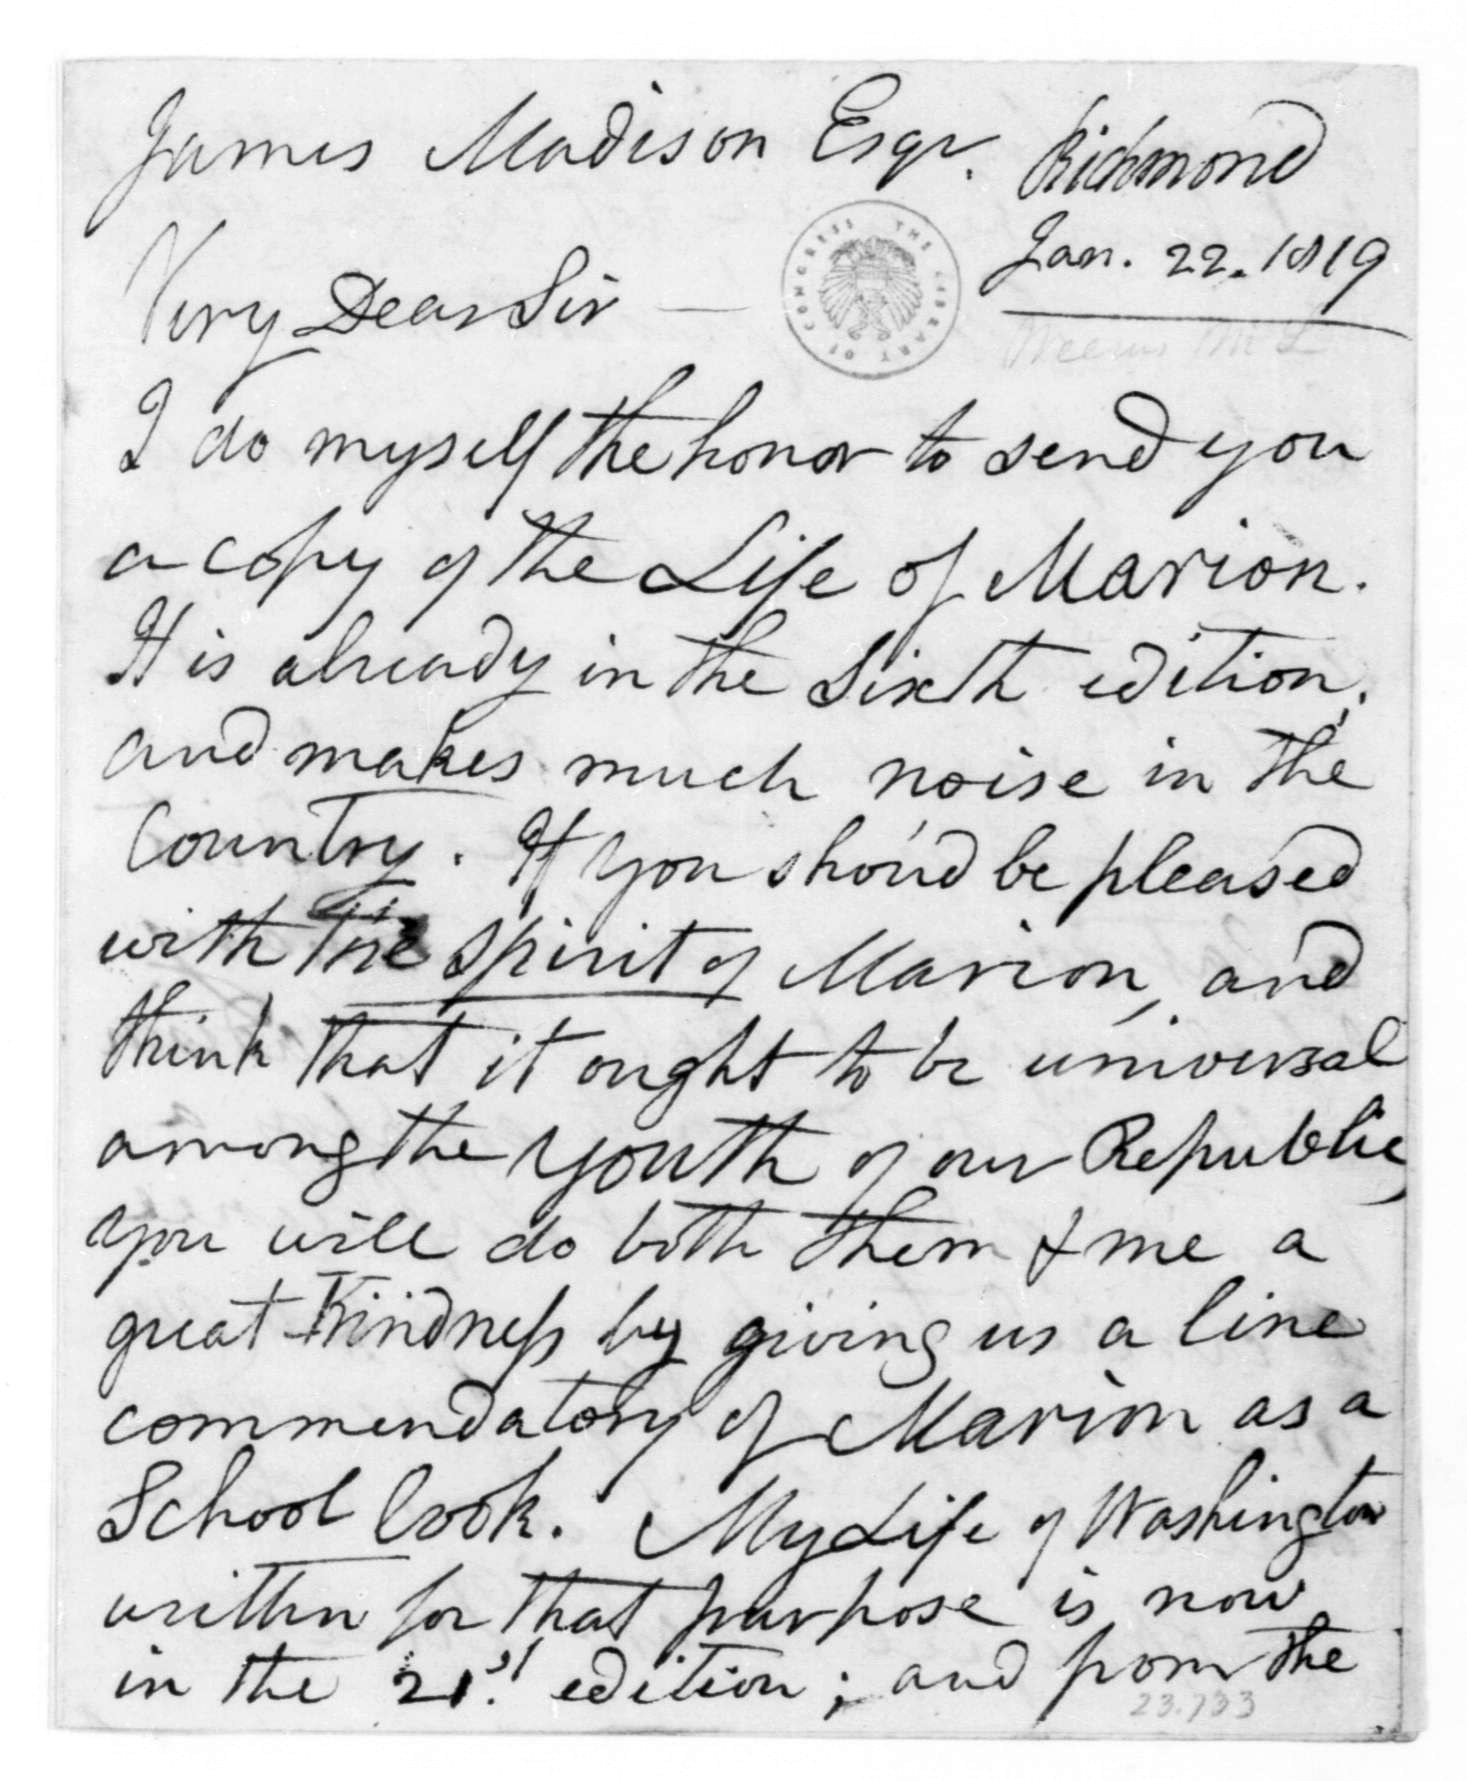 James Madison Esqr. Richmond
Jan. 22. 1819
THE LIBRARY OF CONGRESS
Very Dear Sir —
Weems M L
I do myself the honor to send you
a copy of the Life of Marion.
It is already in the Sixth edition,
and makes much noise in the
Country. If you shou'd be pleased
with the spirit of Marion, and
think that it ought to be universal
among the Youth of our Republic,
you will do both them & me a
great Kindness by giving us a line
commendatory of Marion as a
School book. My Life of Washington
written for that purpose is now
in the 21st edition; and from the
23.733